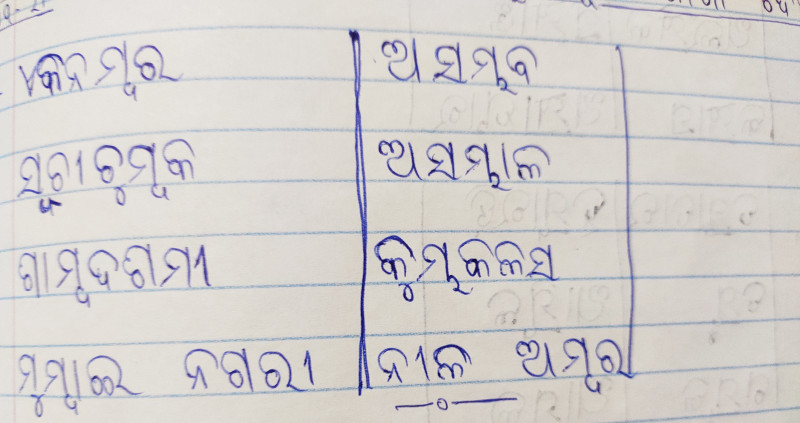 ଏକନମ୍ବର ଅସମ୍ଭବ
ସୂଚୀଚୁମ୍ବକ ଅସମ୍ଭାଳ
ଶାମ୍ବଦଶମୀ କୁମ୍ଭକଳସ
ମୁମ୍ବାଇ ନଗରୀ ନୀଳ ଅମ୍ବର